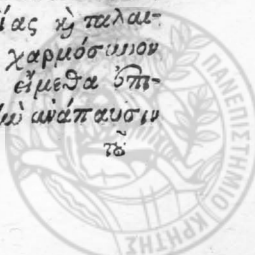 ίας καὶ παλαι-
χαρμόσυνον
εἴμεθα ἐπι-
ὼ ἀνάπαυσιν
τοῦ
ΠΑΝΕΠΙΣΤΗΜΙΟ ΚΡΗΤΗΣ